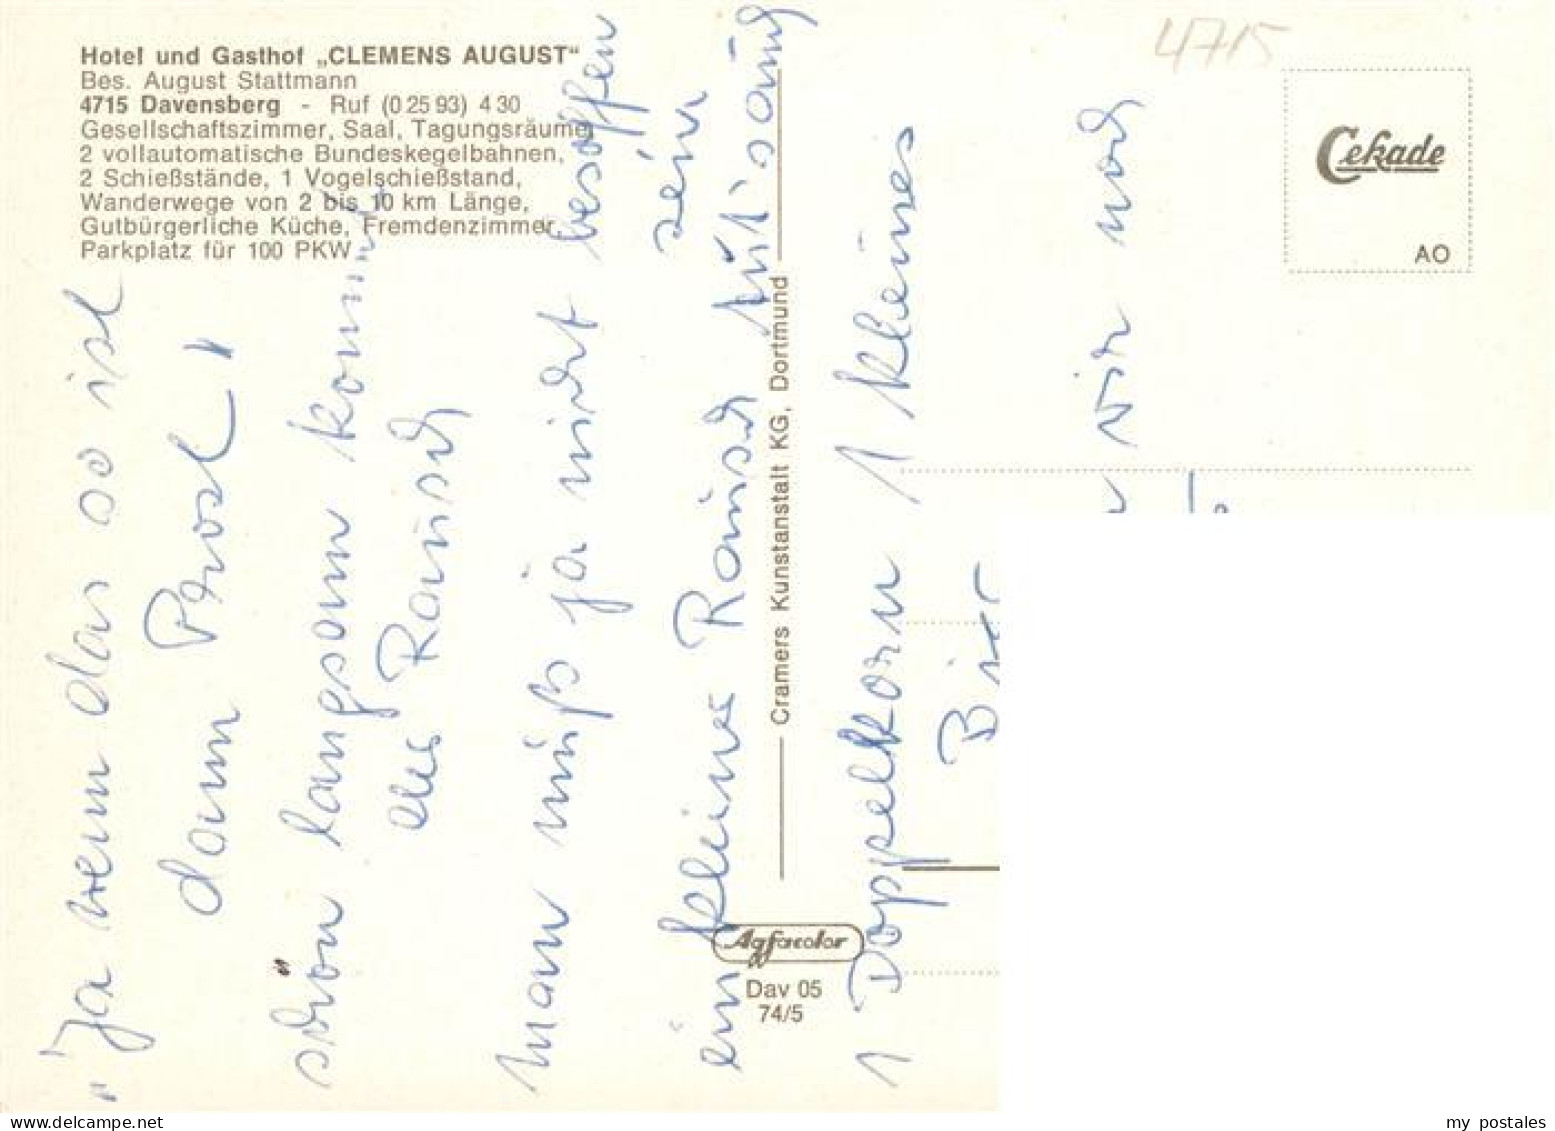 Hotel und Gasthof „CLEMENS AUGUST“
Bes. August Stattmann
4715 Davensberg - Ruf (0 25 93) 4 30
Gesellschaftszimmer, Saal, Tagungsräume,
2 vollautomatische Bundeskegelbahnen,
2 Schießstände, 1 Vogelschießstand,
Wanderwege von 2 bis 10 km Länge,
Gutbürgerliche Küche, Fremdenzimmer,
Parkplatz für 100 PKW
4715
Cekade
AO
„Ja wenn das so ist
dann Prost"
schön langsam kommt
der Rausch
man muß ja nicht besoffen
sein
ein kleiner Rausch
1 Doppelkorn 1 kleines
Bier
wir noch
Cramers Kunstanstalt KG, Dortmund
Agfacolor
Dav 05
74/5
delcampe.net
my_postales